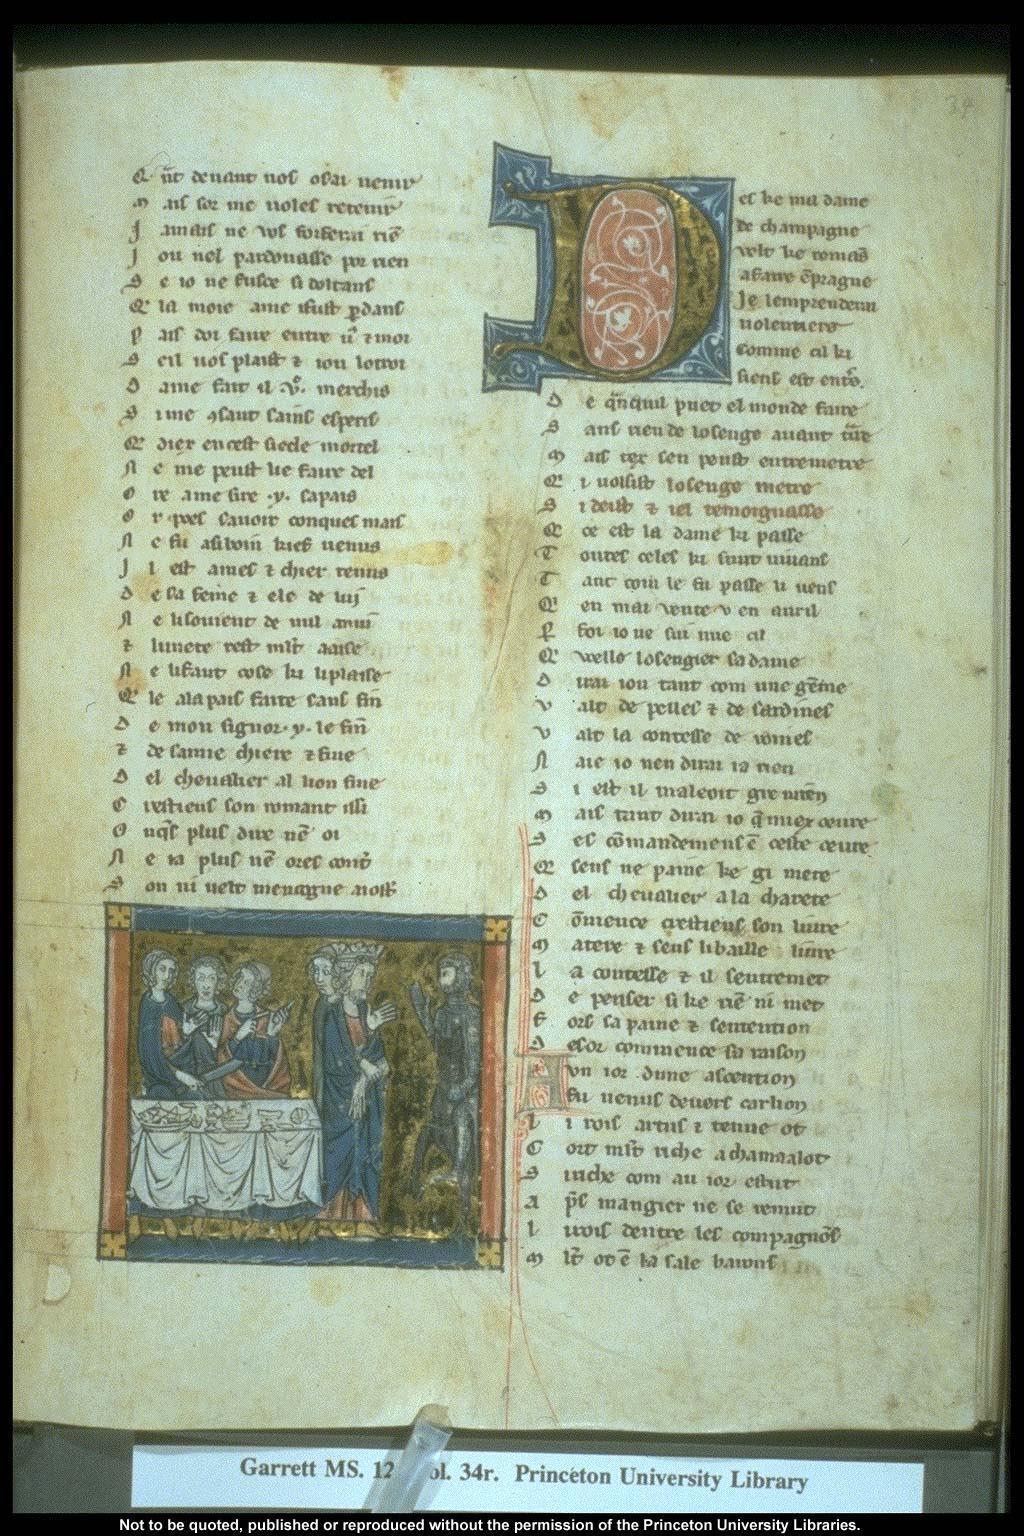 Q̃nt deuant uos osai uenir
Mais sor me uoles retenir
Jamais ne uos forferai riẽ
Jou nel pardonasse por rien
Se io ne fusce si doltans
Q la moie ame fust ꝑdans
Pais doi faire entre uꝰ ⁊ moi
Scil uos plaist ⁊ iou lotroi
Dame fait il .vᶜ. merchis
Si me ꝯsaut sains esperis
Q dier en cest siecle mortel
Ne me peust lie faire del
Ore ame sire .y. sa pais
Or poes sauoir conques mais
Ne fu a si boin kief uenus
Jl est ames ⁊ chier tenus
De sa feme ⁊ ele de lui
Ne li souient de nul anui
⁊ lunete rest mlt aaise
Ne li faut cose ki li plaise
Qle a la pais faite sans fin
De mon signor .y. le fin
⁊ de samie chiere ⁊ fine
Del cheualier al lion fine
Crestiens son romant issi
Onqs plus dire nẽ oi
Ne ia plus nẽ ores cont̉
Son ni uelt mencogne aiost̉
Des ke ma dame
de champagne
velt ke romãs
a faire ẽpragne
Je lemprenderai
uolentiers
comme cil ki
siens est ent̉s.
De q̃nquil puet el monde faire
Sans rien de losenge auant t̉re
Mais tex sen peust entremetre
Qi uolsist losenge metre
Si deist ⁊ iel temoignasse
Qce est la dame ki passe
Toutes celes ki sunt uiuans
Tant com le fu passe li uens
Qen mai vente v en auril
Par foi io ne sui mie cil
Qwelle losengier sa dame
Dirai iou tant com une gẽme
Valt de pelles ⁊ de sardines
Valt la contesse de roines
Naie io nen dirai ia rien
Si est il maleoit gre mien
Mais tant dirai io q̃ miex oeure
Ses cõmandemens ẽ ceste oeure
Q sens ne paine ke gi mete
Del cheualier a la charete
Cõmence crestiens son liure
Matere ⁊ sens li baille liure
La contesse ⁊ il sentremet
De penser si ke riẽ ni met
Fors sa paine ⁊ sentention
Desor commence sa raison
Aun ior dune ascention
Fu uenus deuers carlion
Li rois artus ⁊ tenue ot
Cort mlt riche a chamaalot
Si riche com au ior estut
Aps̃ mangier ne se remut
Li rois dentre les compagnõs
Mlt ot ẽ la sale barons
34
Garrett MS. 12 ol. 34r. Princeton University Library
Not to be quoted, published or reproduced without the permission of the Princeton University Libraries.